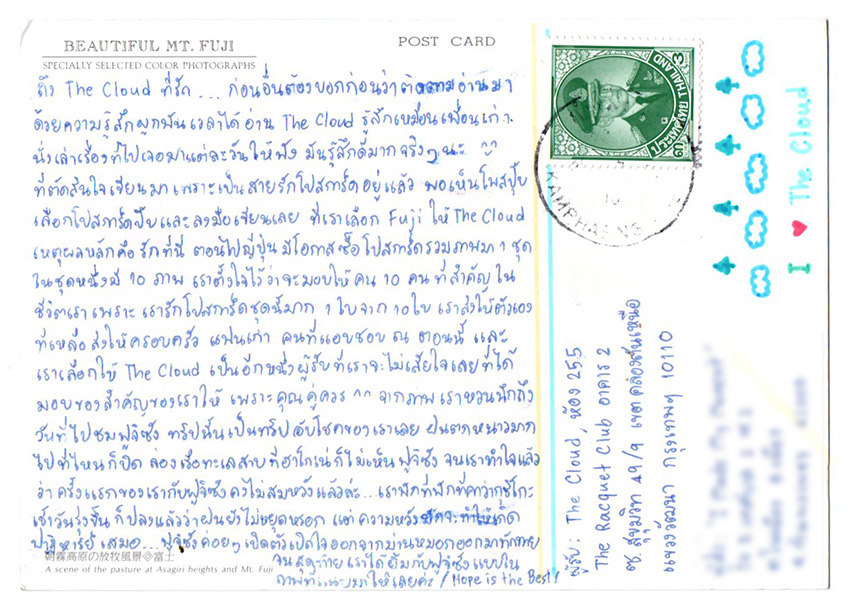 BEAUTIFUL MT. FUJI
SPECIALLY SELECTED COLOR PHOTOGRAPHS
POST CARD
ถึง The Cloud ที่รัก ... ก่อนอื่นต้องบอกก่อนว่าติดตามอ่านมา
ด้วยความรู้สึกผูกพันเวลาได้อ่าน The Cloud รู้สึกเหมือนเพื่อนเก่า
นั่งเล่าเรื่องที่ไปเจอมาแต่ละวันให้ฟัง มันรู้สึกดีมากจริงๆนะ ^^
ที่ตัดสินใจเขียนมาเพราะเป็นสายรักโปสการ์ดอยู่แล้ว พอเห็นโพสปุ๊บ
เลือกโปสการ์ดปั๊บและลงมือเขียนเลย ที่เราเลือก Fuji ให้ The Cloud
เหตุผลหลักคือรักที่นี่ ตอนไปญี่ปุ่น มีโอกาสซื้อโปสการ์ดรวมภาพมา 1 ชุด
ในชุดหนึ่งมี 10 ภาพ เราตั้งใจไว้ว่าจะมอบให้คน 10 คนที่สำคัญใน
ชีวิตเรา เพราะ เรารักโปสการ์ดชุดนี้มาก 1 ใบจาก 10 ใบ เราส่งให้ตัวเอง
ที่เหลือส่งให้ครอบครัว แฟนเก่า คนที่แอบชอบ ณ ตอนนี้ และ
เราเลือกให้ The Cloud เป็นอีกหนึ่งผู้รับที่เราจะไม่เสียใจเลยที่ได้
มอบของสำคัญของเราให้ เพราะคุณคู่ควร ^^ จากภาพเราหวนนึกถึง
วันที่ไปชมฟูจิซัง ทริปนั้นเป็นทริปอับโชคของเราเลย ฝนตกหนาวมาก
ไปที่ไหนก็ปิด ล่องเรือทะเลสาบที่ฮาโกเน่ก็ไม่เห็นฟูจิซัง จนเราทำใจแล้ว
ว่า ครั้งแรกของเรากับฟูจิซังคงไม่สมหวังแล้วล่ะ... เราพักที่พักที่คาวากุชิโกะ
เช้าวันรุ่งขึ้น ก็ปลงแล้วว่าฝนยังไม่หยุดหรอก แต่ ความหวังมักจะทำให้เกิด
ปาฏิหาริย์เสมอ... ฟูจิซังค่อยๆเปิดตัวเปิดใจออกจากม่านหมอกออกมาทักทาย
จนสุดท้ายเราได้ยิ้มกับฟูจิซังแบบใน
ภาพที่แนบมาให้เลยค่ะ / Hope is the Best!
朝霧高原の放牧風景 富士
A scene of the pasture at Asagiri heights and Mt. Fuji
THAILAND
3
KAMPHAENG
I ♥ The Cloud
ผู้รับ : The Cloud, ห้อง 255
The Racquet Club อาคาร 2
ซ. สุขุมวิท 49/9 เขต คลองตันเหนือ
แขวงวัฒนา กรุงเทพฯ 10110